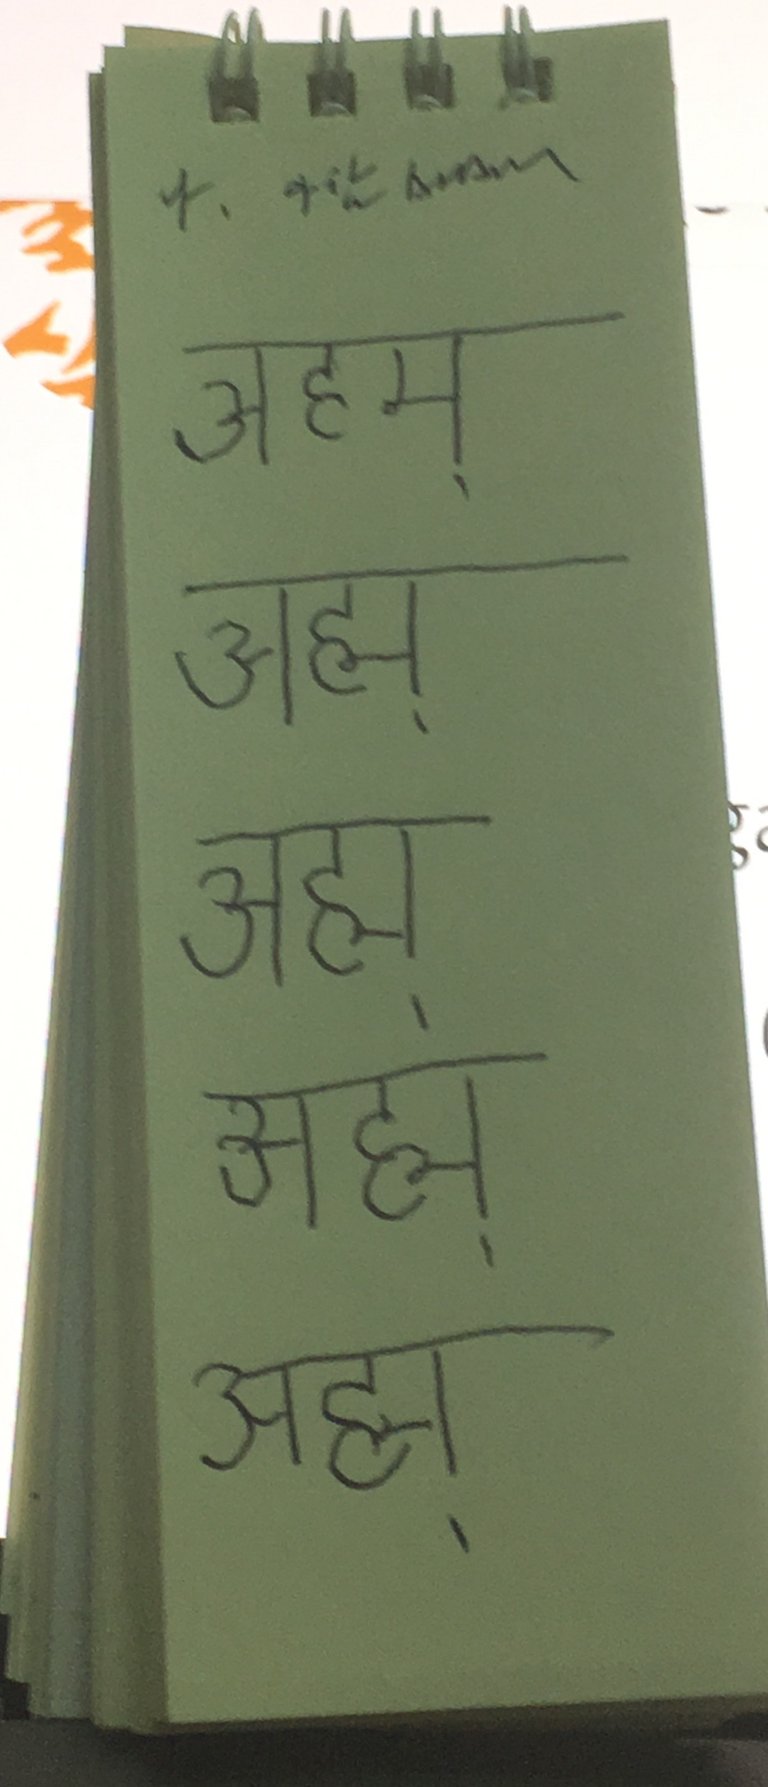 अहम्
अह्म्
अह्म्
अह्म्
अह्म्